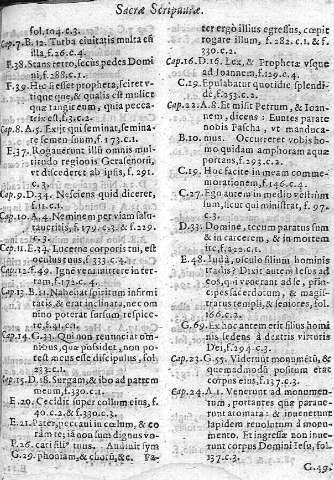 Sacræ Scripturæ.
fol. 104. c. 3.
Cap. 7. B. 12. Turba ciuitatis multa cũ
illa, f. 26. c. 4.
F. 38. Stans retro, secus pedes Domi
ni, f. 288. c. 1.
F. 39. Hic si esset propheta, sciret v-
tique quæ, & qualis est mulier
quæ tangit eum, quia pecca-
trix est, f. 3. c. 2.
Cap. 8. A. 5. Exijt qui seminat, semina-
re semen suum, f. 173. c. 1.
E. 37. Rogauerunt illũ omnis mul
titudo regionis Gerasenorũ,
vt discederet ab ipsis, f. 291.
c. 3.
Cap. 9. D. 34. Nesciens quid diceret,
f. 11. c. 1.
Cap. 10. A. 4. Neminem per viam salu-
taueritis, f. 179. c. 3. & f. 229.
c. 3.
Cap. 11. E. 34. Lucerna corporis tui, est
oculus tuus, f. 333. c. 4.
Cap. 12. F. 49. Igné veni mittere in ter-
ram, f. 172. c. 4.
Cap. 13. B. 11. Habebat spiritum infirmi
tatis, & erat inclinata, nec om
nino poterat sursum respice-
re, f. 41. c. 1.
Cap. 14. G. 33. Qui non renuntiat om-
nibus, quæ possidet, non po-
test meus esse discipulus, fol.
233. c. 1.
Cap. 15. D. 18. Surgam, & ibo ad patrem
meum, f. 330. c. 1.
E. 20. Cecidit super collum eius, f.
40. c. 2. & f. 330. c. 3.
E. 21. Pater, peccaui in cœlum, & co
ram te; iã non sum dignus vo-
F. 26. cari filius tuus. Audiuit sym
G. 29. phoniam, & chorũ, &c. Pa-
ter ergò illius egressus, cœpit
rogare illum, f. 282. c. 1. & f.
330. c. 2.
Cap. 16. D. 16. Lex, & Prophetæ vsque
ad Ioannem, f. 129. c. 4.
C. 19. Epulabatur quotidie splendi-
dè, f. 253. c. 2.
Cap. 22. A. 8. Et misit Petrum, & Ioan-
nem, dicens: Euntes parate
nobis Pascha, vt manduce-
B. 10. mus. Occurreret vobis ho-
mo quidam amphoram aquæ
portans, f. 293. c. 2.
C. 19. Hoc facite in meam comme-
morationem, f. 146. c. 4.
C. 27. Ego autem in medio vestrũm
sum, sicut qui ministrat, f. 97.
c. 3.
D. 33. Domine, tecum paratus sum
& in carcerem, & in mortem
ire, f. 229. c. 1.
E. 48. Iuda, osculo filium hominis
tradis? Dixit autem Iesus ad
eos, qui venerant ad se, prin-
cipes sacerdotum, & magi-
stratus templi, & seniores, fol.
166. c. 2.
G. 69. Ex hoc autem erit filius homi
nis sedens à dextris virtutis
Dei, f. 294. c. 3.
Cap. 23. G. 55. Viderunt monumẽtũ, &
quemadmodũ positum erat
corpus eius, f. 137. c. 3.
Cap. 24. A. 1. Venerunt ad monumen-
tum, portantes quæ paraue-
rant aromata: & inuenerunt
lapidem reuolutum à monu-
mento. Et ingressæ non inue
nerunt corpus Domini Iesu, fol.
137. c. 3.
G. 49.